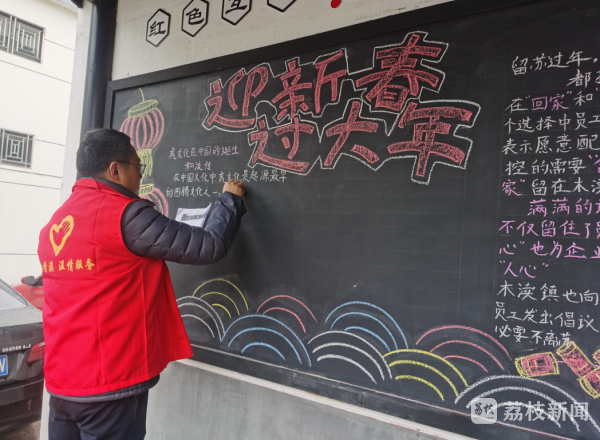 红色宣
迎新春
过大年
虎文化在中国的诞生
和流传
在中国文化中真生化是起源最早
的图腾文化之一，
留苏过年，
在"回家"和
个选择中员工
表示愿意配
控的需要"
家"留在木渎
满满的
不仅留住了员
心"也为企业
"人心"
木渎镇也向
员工发出倡议
必要不离苏
温情服务
荔枝新闻